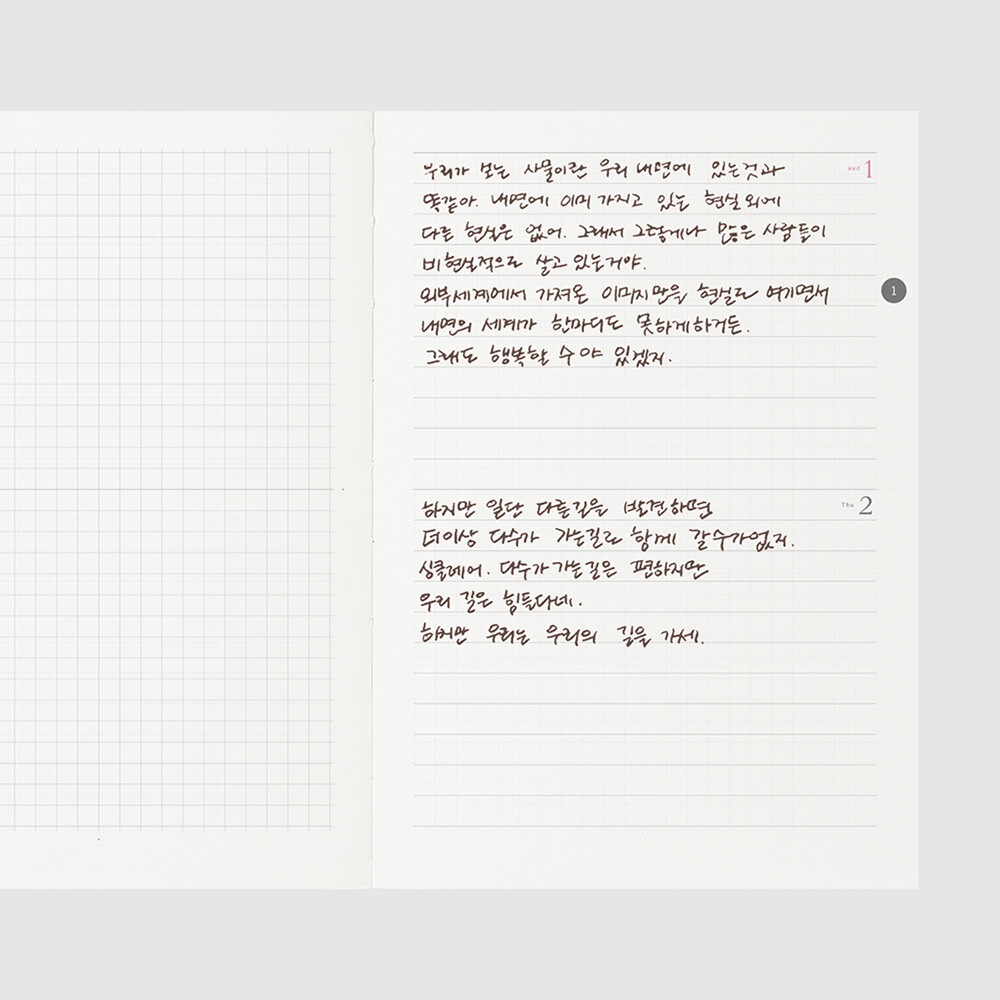 우리가 보는 사물이란 우리 내면에 있는것과
Wed 1
똑같아. 내면에 이미 가지고 있는 현실 외에
다른 현실은 없어. 그래서 그렇게나 많은 사람들이
비현실적으로 살고 있는거야.
외부세계에서 가져온 이미지만을 현실로 여기면서
1
내면의 세계가 한마디도 못하게하거든.
그래도 행복할 수야 있겠지.
하지만 일단 다른길을 발견하면
Thu 2
더이상 다수가 가는길로 함께 갈수가없지.
싱클레어. 다수가가는길은 편하지만
우리 길은 힘들다네.
하지만 우리는 우리의 길을 가세.